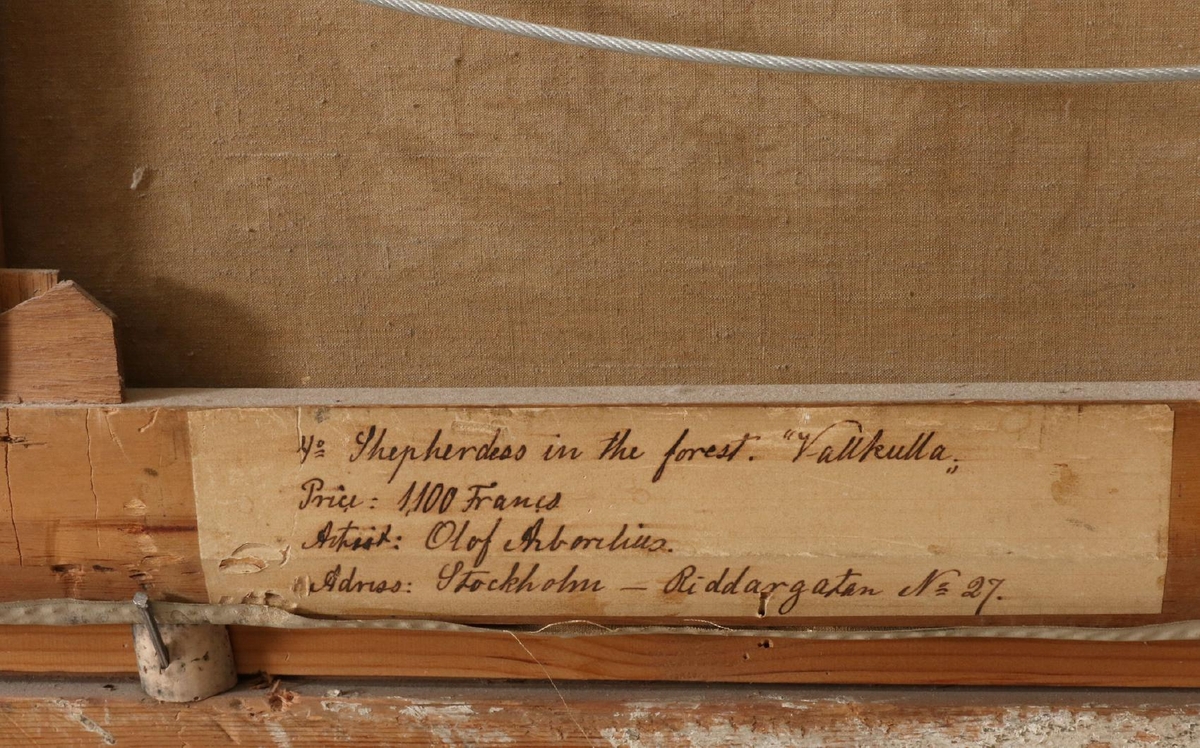 4º Shepherdess in the forest. "Vallkulla„
Price: 1,100 Francs
Artist: Olof Arborelius.
Adress: Stockholm — Riddargatan Nº 27.